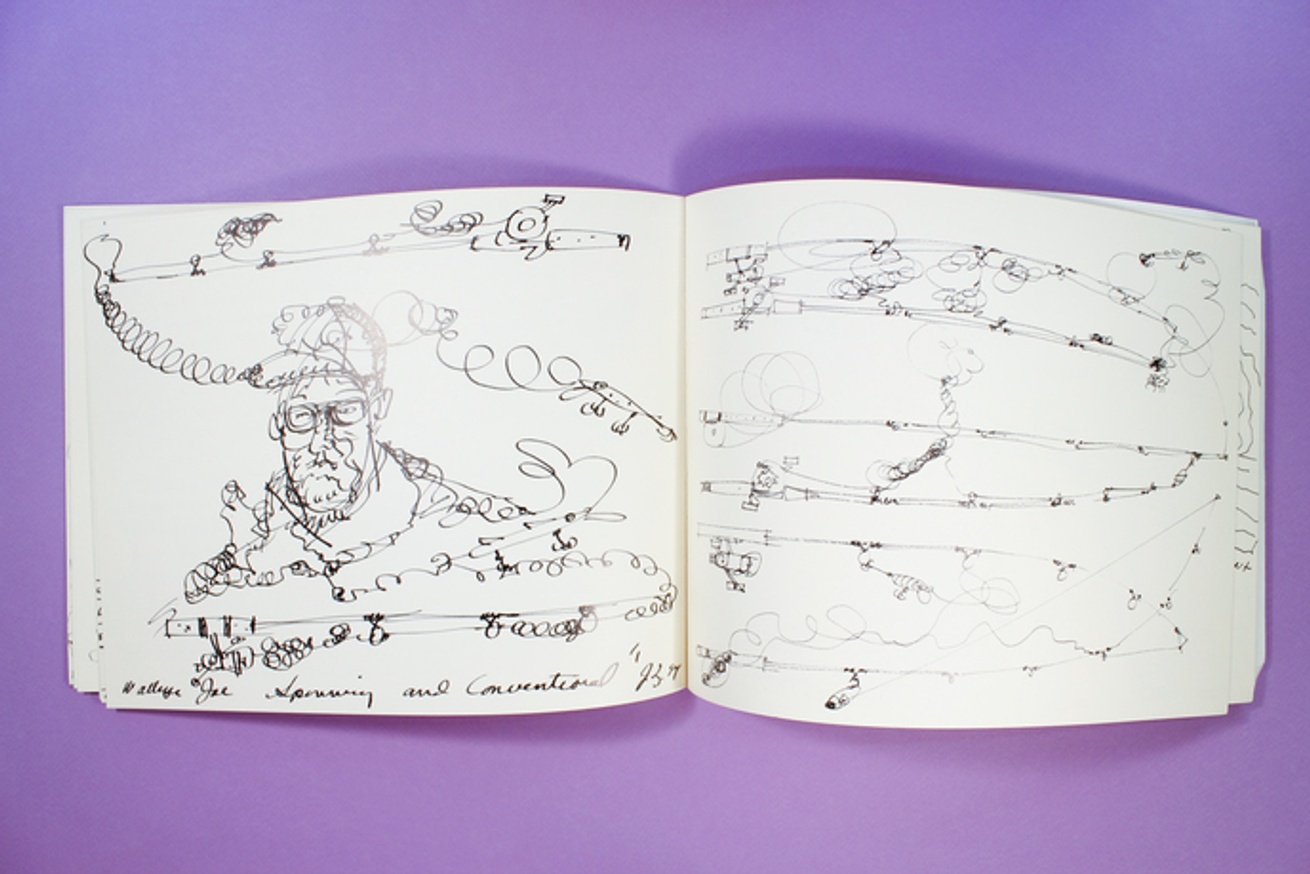 Walleye Joe Spinning and Conventional "